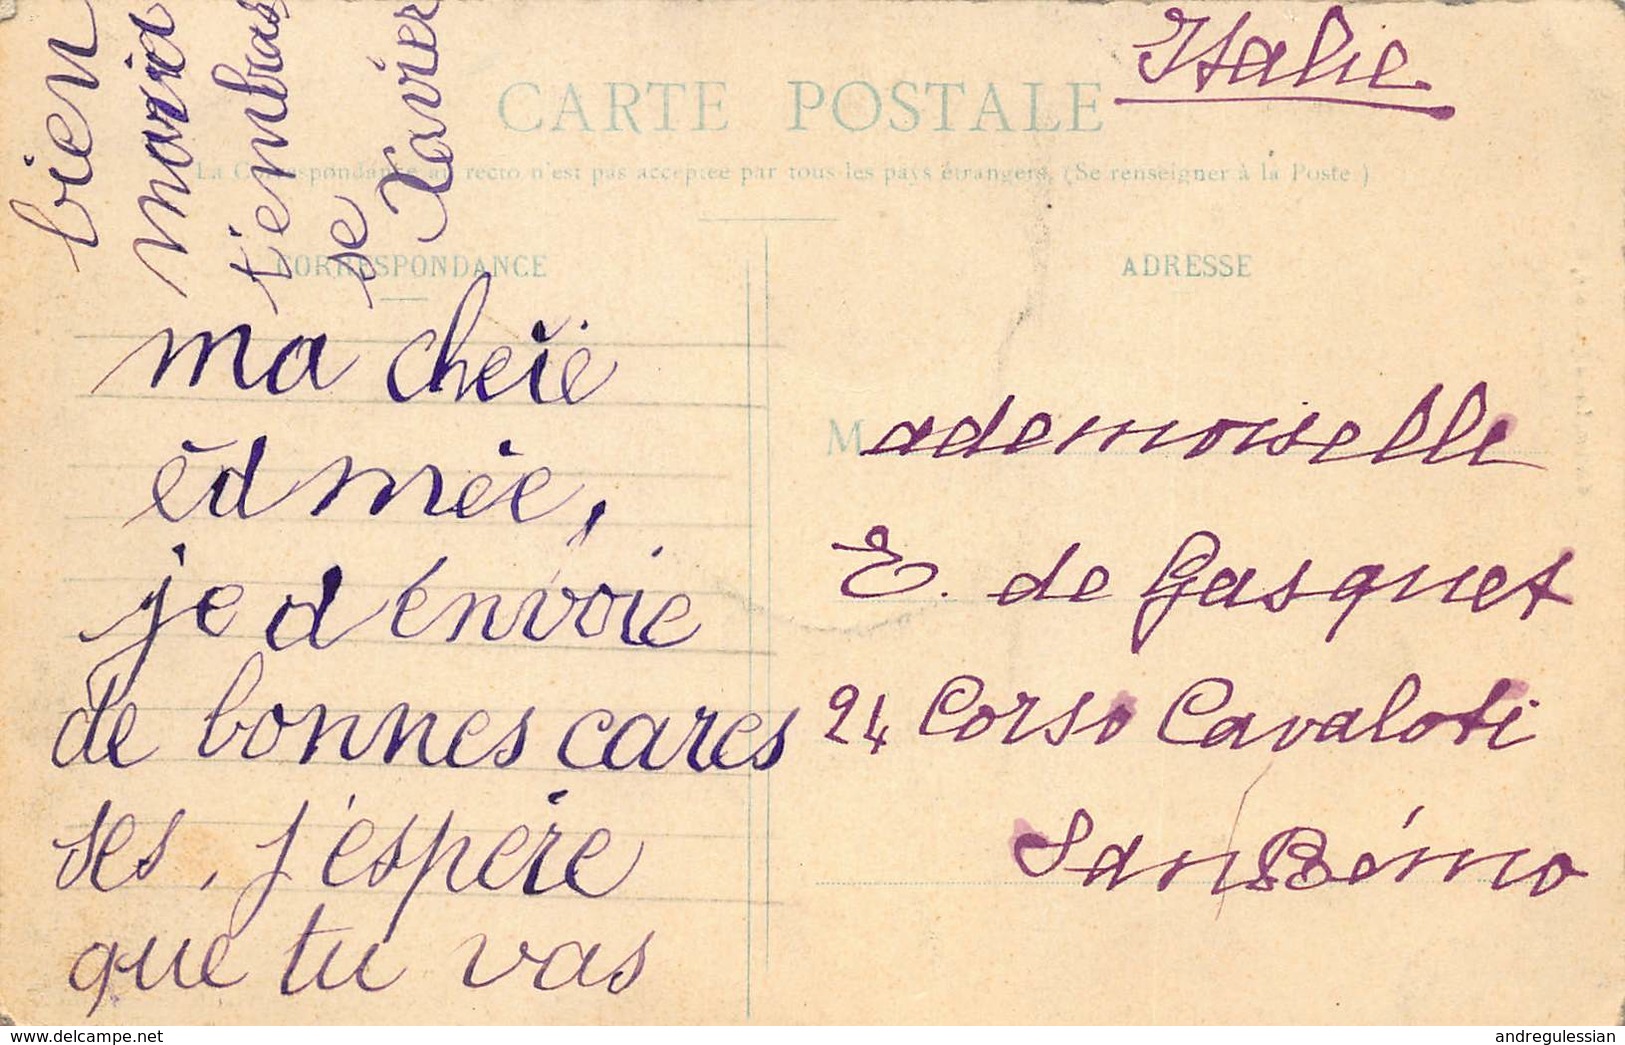 Italie
CARTE POSTALE
La Correspondance au recto n'est pas acceptée par tous les pays étrangers. (Se renseigner à la Poste.)
CORRESPONDANCE
ma cheïe
édmée,
je d énvoie
de bonnes cares
ses, j'espére
que tu vas
bien
t'embras
se
Xavier
ADRESSE
Mademoiselle
E. de Gasquet
24 Corso Cavaloti
San Rémo
delcampe.net
andregulessian